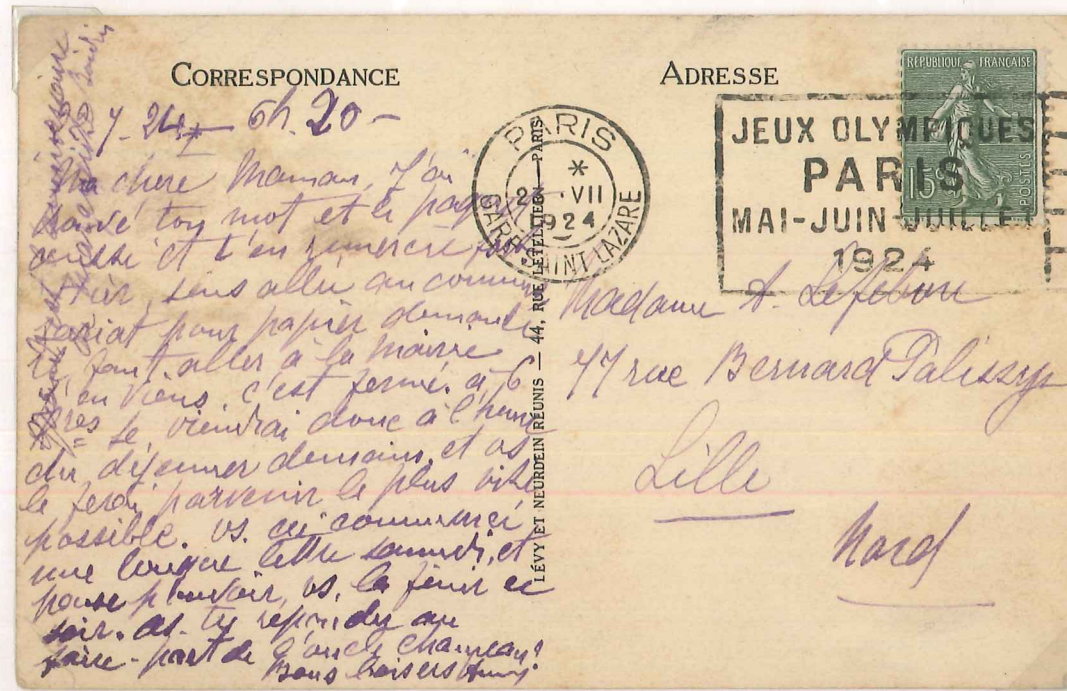 CORRESPONDANCE
7-24 6h.20-
Ma chère Maman, J'ai
ton mot et le
et t'en remercie
Hier, suis allée au commis
sariat pour papier demandé
Il faut aller à la mairie
J'en viens, c'est fermé à 6
hres Je viendrai donc à l'heure
du déjeuner demain, et vs
le ferai parvenir le plus vite
possible. Vs. ai commencé
une longue lettre samedi, et
pense pouvoir vs. la finir ce
soir. As-tu répondu au
faire-part de l'oncle
Bons baisers
LÉVY ET NEURDEIN RÉUNIS — 44, RUE LETELLIER — PARIS
ADRESSE
PARIS
*
VII
1924
GARE SAINT LAZARE
JEUX OLYMPIQUES
PARIS
MAI-JUIN-JUILLET
1924
RÉPUBLIQUE FRANÇAISE
15c
POSTES
Madame A. Lefebvre
77 rue Bernard Palissy
Lille
Nord